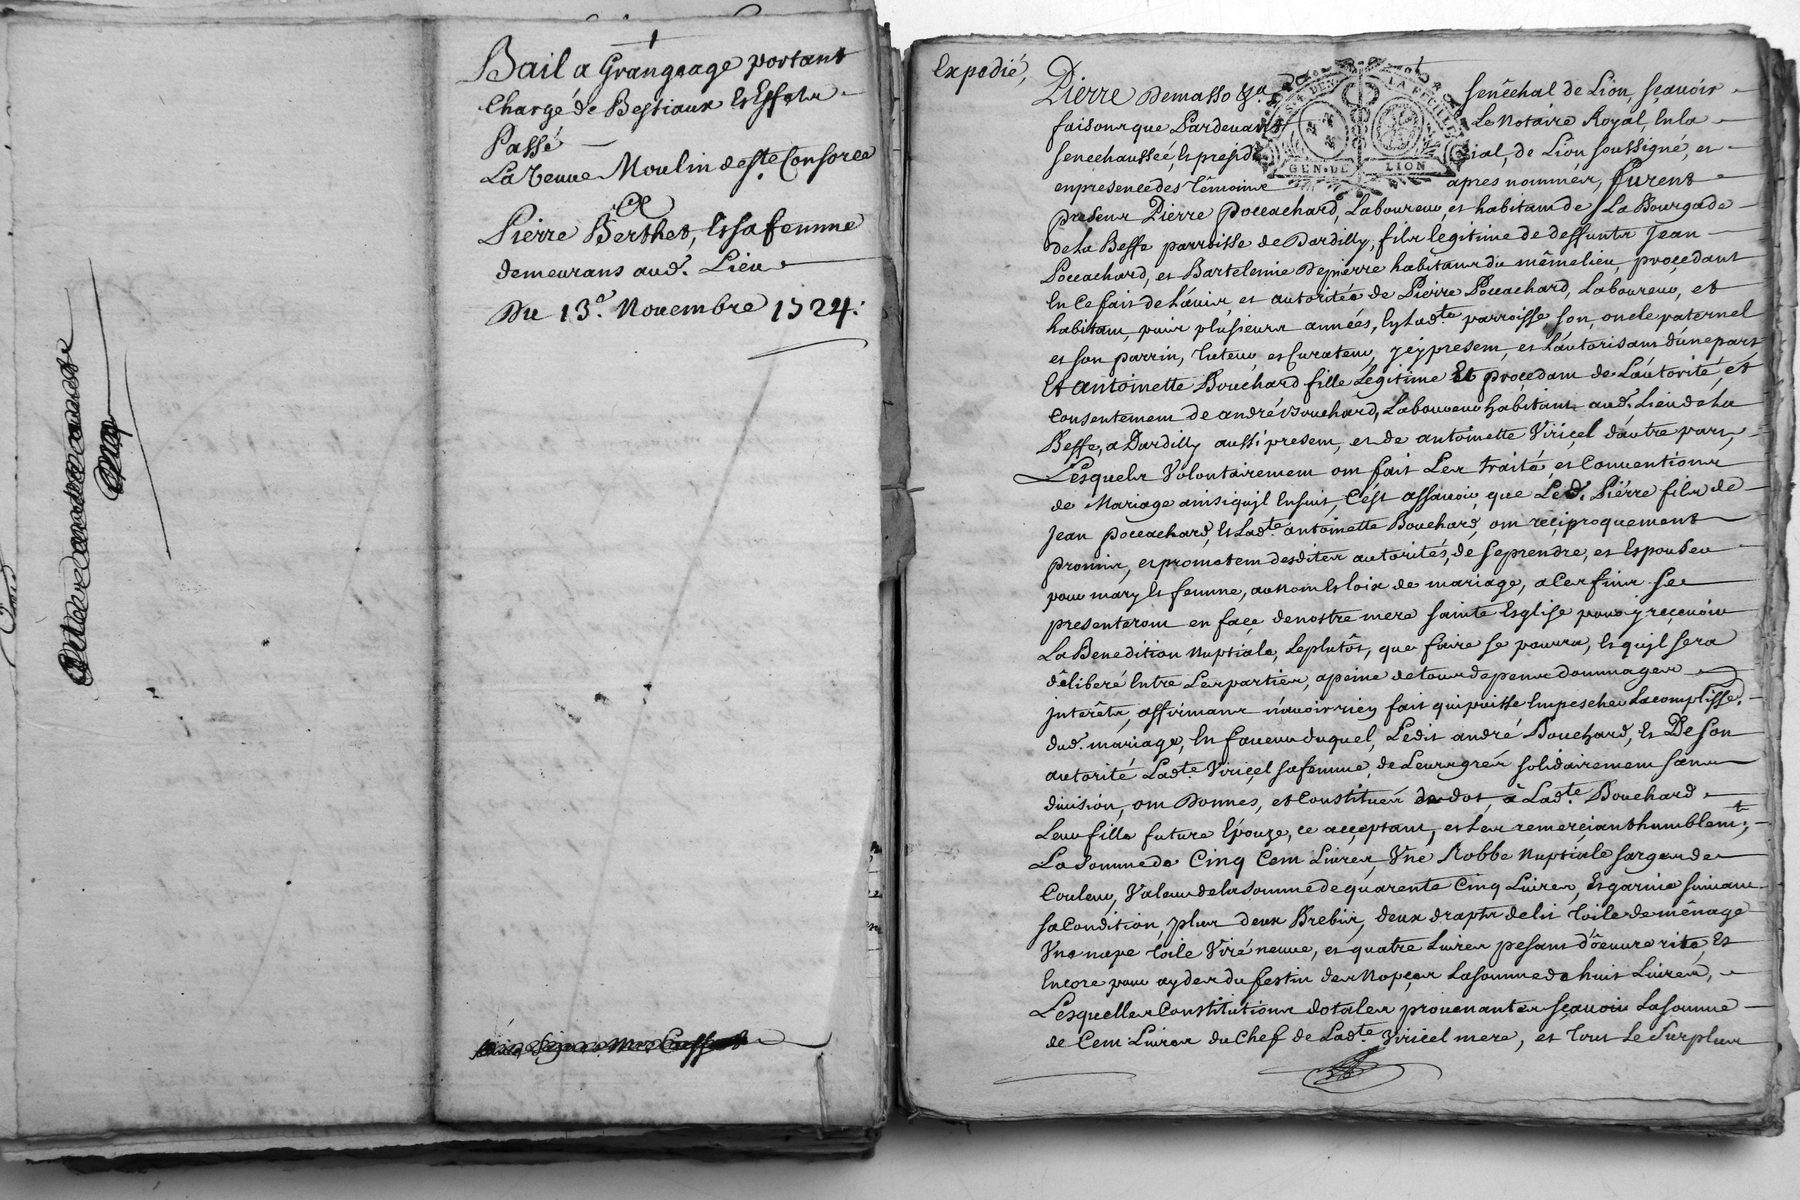 Bail a Grangeage portant
Chargé de Bestiaux Et Effets
Passé
La Veuve Moulin de Ste. Consorce
A
Pierre Berthet, Et sa femme
demeurans aud. Lieu
Du 13e. Novembre 1724.
Expedié,
Pierre Demasso
senêchal de Lion, sçavoir
faisons que Pardevant
Le Notaire Royal, En la
senechausseé, Et presidi
ial, de Lion soussigné, et
en presence des têmoins
apres nommés, furent
GEN. DE LION
presens Pierre Poccachard, Laboureur, et habitant de La Bourgade
de La Beffe parroisse de Dardilly, fils legitime de deffunts Jean
Poccachard, et Bartelemie Depierre habitans du même lieu, procedant
En Ce fait de L'avis, et autoritée de Pierre Poccachard, Laboureur, et
habitant, puis plusieurs années, En Lade. parroisse son, oncle paternel
et son parrin, tuteur, et Curateur, icy present, et L'autorisant d'une part
Et antoinette Bouchard fille Legitime Et procedant de L'autorité, et
Consentement de andré Bouchard, Laboureur habitant aud. Lieu de La
Beffe, a Dardilly aussi present, et de antoinette Viricel d'autre part,
Lesquels Volontairement ont fait Les traité, et Conventions
de Mariage ainsi qu'il Ensuit, C'est assavoir, que Led. Pierre fils de
Jean poccachard, Et Lade. antoinette Bouchard, ont reciproquement
promis, et promettent desdites autorités, de se prendre, et Espouser
pour mary Et femme, au nom Et loix de mariage, a Ces fins se
presenteront en façe de nostre mere sainte Esglise pour y reçevoir
La Benedition Nuptiale, Le plutôt, que faire se pourra, Et qu'il sera
déliberé Entre Les parties, a peine de tous depens dommages
Interêts, affirmans n'avoir rien fait qui puisse Empescher L'acomplisse.
dud. mariage, En faveur duquel, Ledit andré Bouchard, Et De son
autorité Lade. Viricel sa femme, de Leurs grés solidairement sans
division, ont Donnes, et Constitués en dot, â Lade. Bouchard
Leur fille future Epouze, ce acceptant, et Les remerciant humblemt.,
La somme de Cinq Cent Livres, Une Robbe Nuptiale sarge de
Couleur, Valeur de la somme de quarente Cinq Livres, Et garnie suivant
sa Condition, plus deux Brebis, deux draps de lit toile de mênage
Une nape toile Viré neuve, et quatre Livres pesant d'œuvre rite, Et
Encore pour ayder du festin des Nopçes La somme de huit Livres,
Lesquelles Constitutions dotales provenantes sçavoir La somme
de Cent Livres du Chef de Lade. Viricel mere, et tout Le Surplus